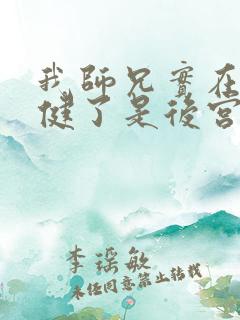 我師兄實在
健了是後宮
李瑤敏
未经同意禁止转载